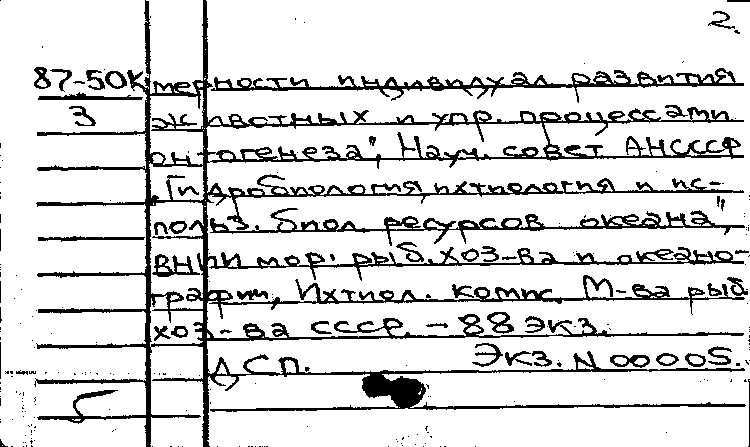 2.
87-50К мерности индивидуал развития
3 животных и упр. процессами
онтогенеза", Науч. совет АНСССР
"Гидробиология, ихтиология и ис-
польз. биол. ресурсов океана",
ВНИИ мор. рыб. хоз-ва и океано-
графии, Ихтиол. комис. М-ва рыб
хоз-ва СССР. - 88 экз.
ДСП. Экз. N 00005.
5